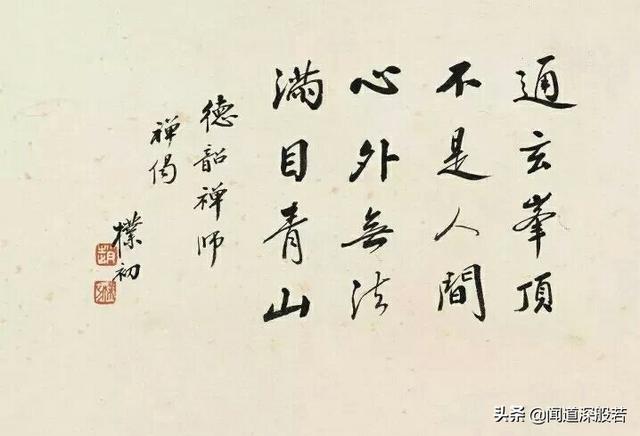 通玄峯頂
不是人間
心外無法
滿目青山
德韶禅师
禅偈
樸初
头条 @闻道深般若